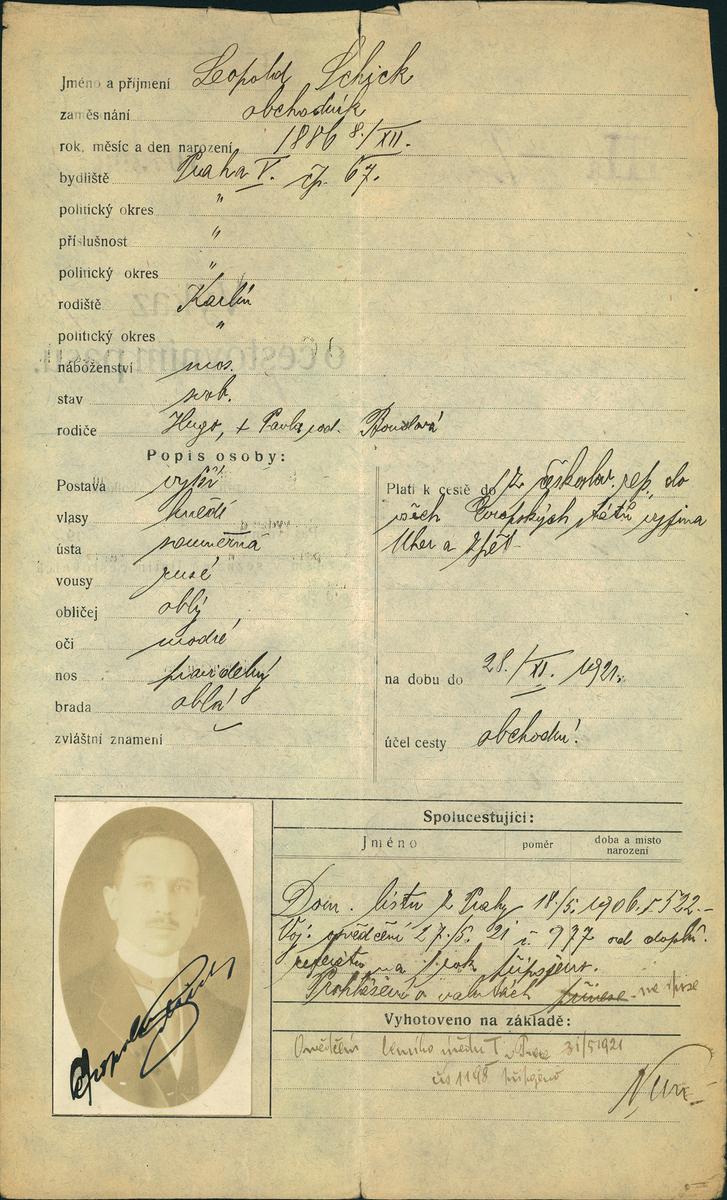 Jméno a příjmení Leopold Schick
zaměstnání obchodník
rok, měsíc a den narození 1886 8./XII.
bydliště Praha V. čp. 67.
politický okres "
příslušnost "
politický okres "
rodiště Karlín
politický okres "
náboženství mos.
stav svob.
rodiče Hugo, + Pavla, roz.
Popis osoby:
Postava vyšší
vlasy hnědé
ústa souměrná
vousy rusé
obličej oblý
oči modré
nos pravidelný
brada oblá
zvláštní znamení
Platí k cestě do z českoslov. rep. do
všech Evropských států vyjma
Uher a zpět
na dobu do 28./XI. 1921.
účel cesty obchodní.
Spolucestující:
Jméno poměr doba a místo narození
Dom. listu z Prahy 18./5. 1906.
Voj. osvědčení 27./5. 21 č. 977 od doplň.
na 1 rok
Prohlášení o valutách
Vyhotoveno na základě:
Osvědčení berního úřadu I v Praze 31/5 1921
čís 1198
Leopold Schick